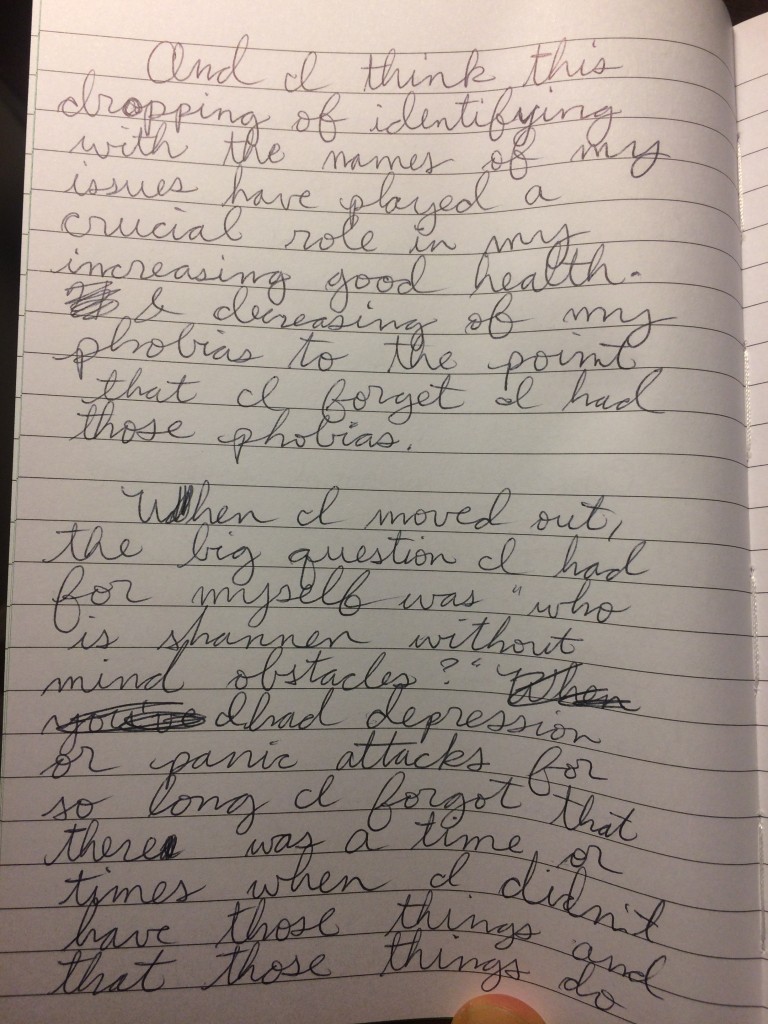 And I think this
dropping of identifying
with the names of my
issues have played a
crucial role in my
increasing good health.
& decreasing of my
phobias to the point
that I forget I had
those phobias.
When I moved out,
the big question I had
for myself was "who
is shannen without
mind obstacles?" When
you've I had depression
or panic attacks for
so long I forgot that
there was a time or
times when I didn't
have those things and
that those things do